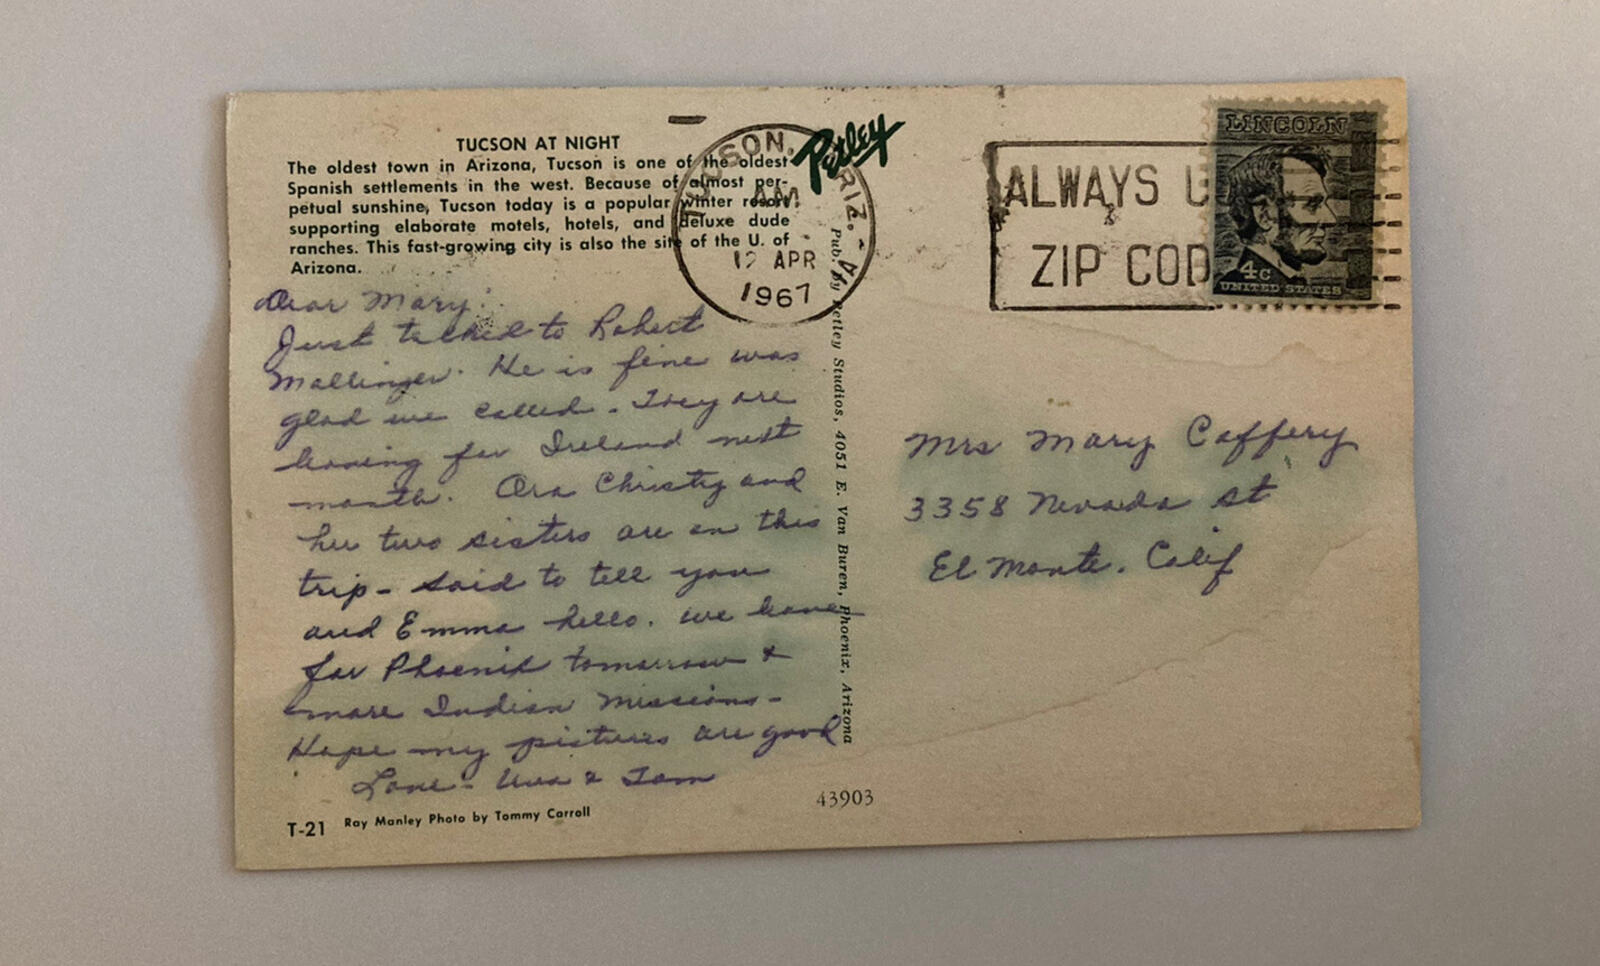 TUCSON AT NIGHT
The oldest town in Arizona, Tucson is one of the oldest
Spanish settlements in the west. Because of almost per-
petual sunshine, Tucson today is a popular winter resort
supporting elaborate motels, hotels, and deluxe dude
ranches. This fast-growing city is also the site of the U. of
Arizona.
Dear Mary:
Just talked to Robert
Mallinger. He is fine was
glad we called - They are
leaving for Ireland next
month. Ora Christy and
her two sisters are on this
trip - said to tell you
and Emma hello. we leave
for Phoenix tomorrow &
more Indian Missions -
Hope my pictures are good
Love - & Tom
T-21 Ray Manley Photo by Tommy Carroll
Petley
TUCSON, ARIZ.
AM
12 APR
1967
Pub. by Petley Studios, 4051 E. Van Buren, Phoenix, Arizona
43903
ALWAYS U
ZIP COD
LINCOLN
4c
UNITED STATES
Mrs Mary Caffery
3358 Nevada St
El Monte. Calif